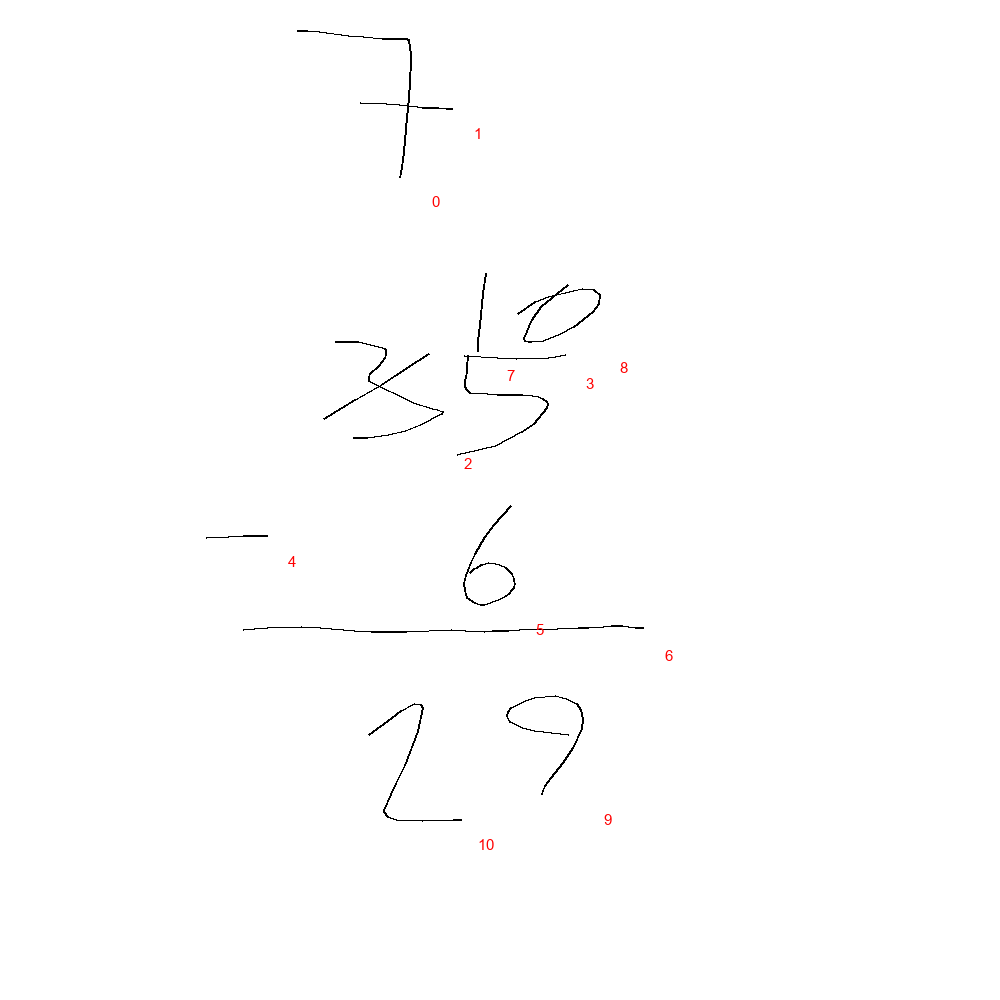 7
1
0
10
7 3 8
35
2
- 6
4
5
6
29
9
10